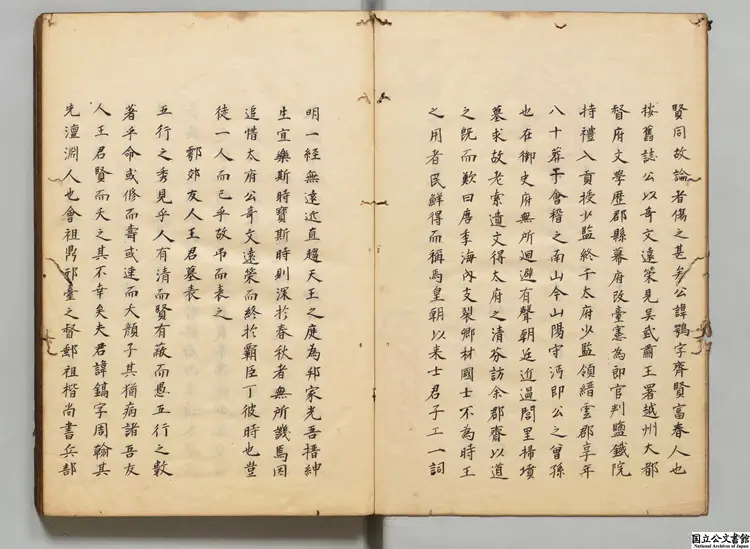 賢同故論者傷之甚矣公諱鶚字齊賢富春人也
按舊誌公以奇文遠策見吳武肅王署越州大都
督府文學歷郡縣幕府改臺憲為郎官判鹽鐵院
持禮入貢授少監終于太府少監領縉雲郡享年
八十葬于會稽之南山今山陽守沔即公之曾孫
也在御史府無所迴避有聲朝廷近過閭里掃墳
墓求故老索遺文得太府之清芬訪余郡齋以道
之既而歎曰唐季海內支裂卿材國士不為時王
之用者民鮮得而稱焉皇朝以來士君子工一詞
明一經無遠近直趨天王之庭為邦家光吾搢紳
生宜樂斯時寶斯時則深於春秋者無所譏焉因
追惜太府公奇文遠策而終於霸臣丁彼時也豈
徒一人而已乎故吊而表之
鄠郊友人王君墓表
五行之秀見乎人有清而賢有蔽而愚五行之數
著乎命或修而壽或速而夭顏子其猶病諸吾友
人王君賢而夭之其不幸矣夫君諱鎬字周翰其
先澶淵人也曾祖鼎邢臺之督郵祖楷尚書兵部
国立公文書館
National Archives of Japan